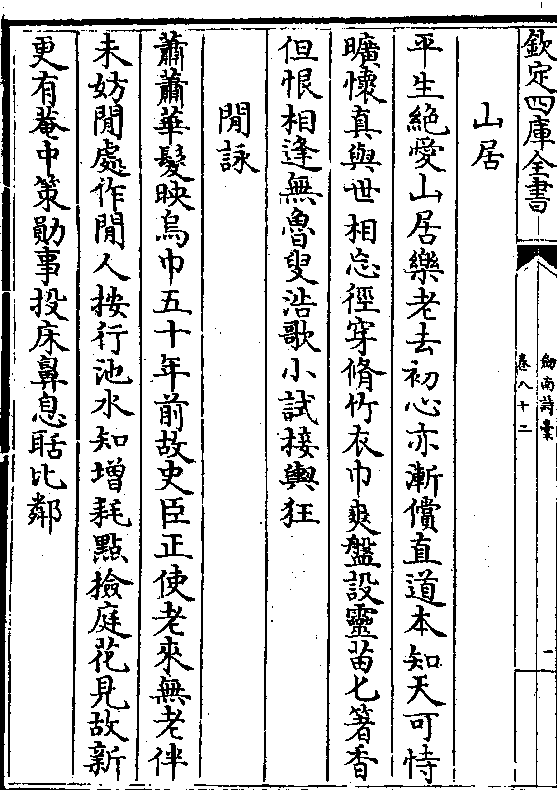 欽定四庫全書
劍南詩槀
卷八十二
山居
平生絶愛山居樂老去初心亦漸償直道本知天可恃
曠懷真與世相忘徑穿脩竹衣巾爽盤設靈苗匕箸香
但恨相逢無魯叟浩歌小試接輿狂
閒詠
蕭蕭華髮映烏巾五十年前故史臣正使老來無老伴
未妨閒處作閒人按行池水知增耗點撿庭花見故新
更有菴中策勛事投床鼻息聒比鄰